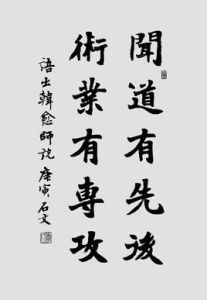 聞道有先後
術業有專攻
語出韓愈師說 庚寅石文